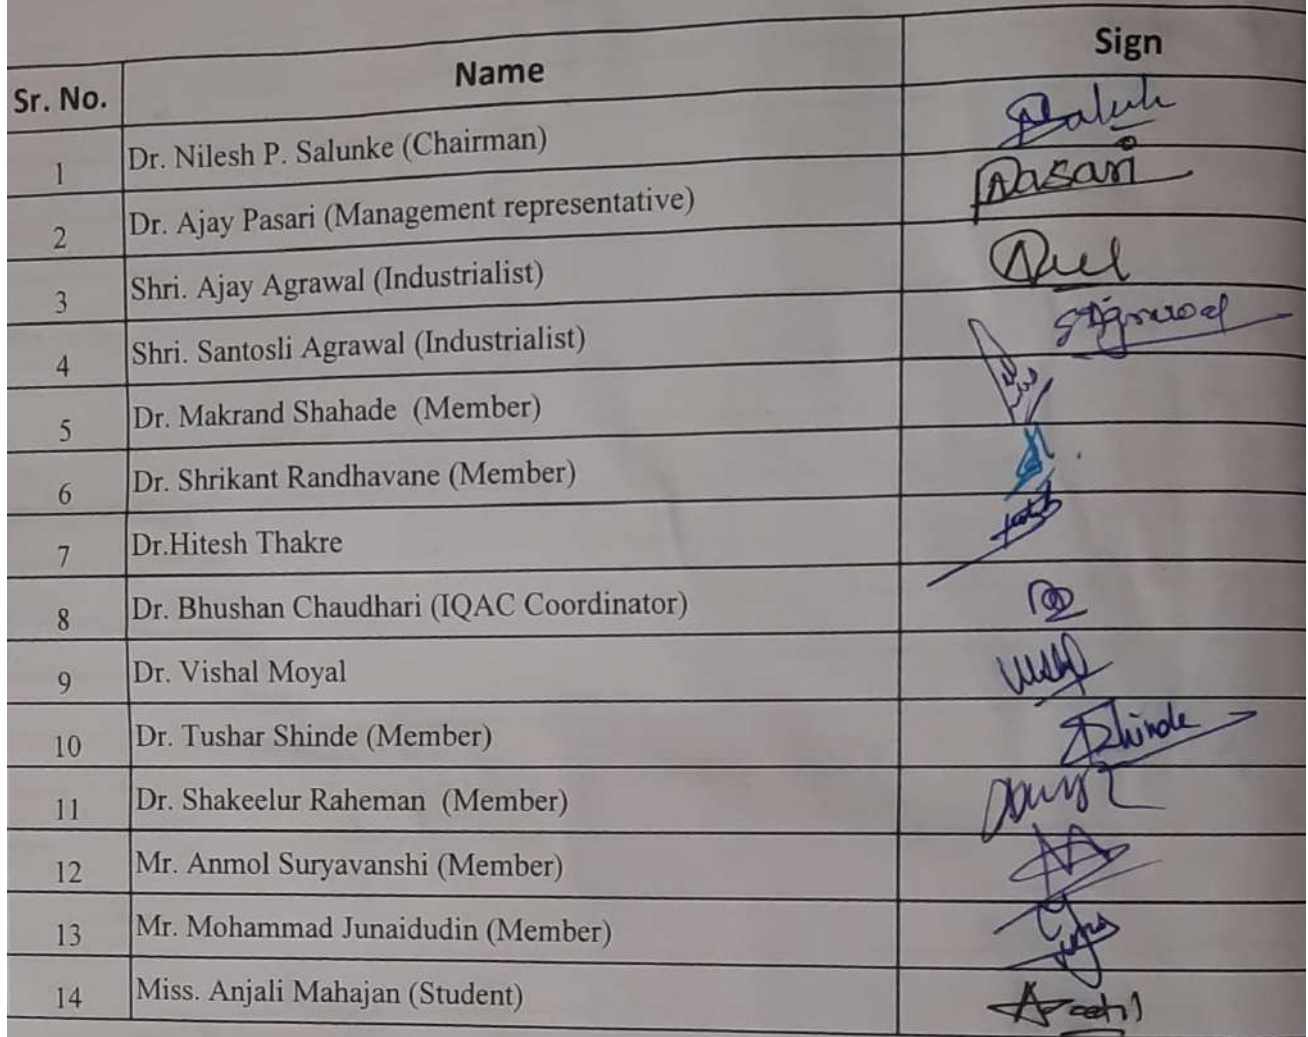 Sr. No. Name Sign
1 Dr. Nilesh P. Salunke (Chairman)
2 Dr. Ajay Pasari (Management representative) Pasari
3 Shri. Ajay Agrawal (Industrialist)
4 Shri. Santosli Agrawal (Industrialist) SAgrawal
5 Dr. Makrand Shahade (Member)
6 Dr. Shrikant Randhavane (Member)
7 Dr.Hitesh Thakre
8 Dr. Bhushan Chaudhari (IQAC Coordinator)
9 Dr. Vishal Moyal
10 Dr. Tushar Shinde (Member) Shinde
11 Dr. Shakeelur Raheman (Member)
12 Mr. Anmol Suryavanshi (Member)
13 Mr. Mohammad Junaidudin (Member)
14 Miss. Anjali Mahajan (Student)